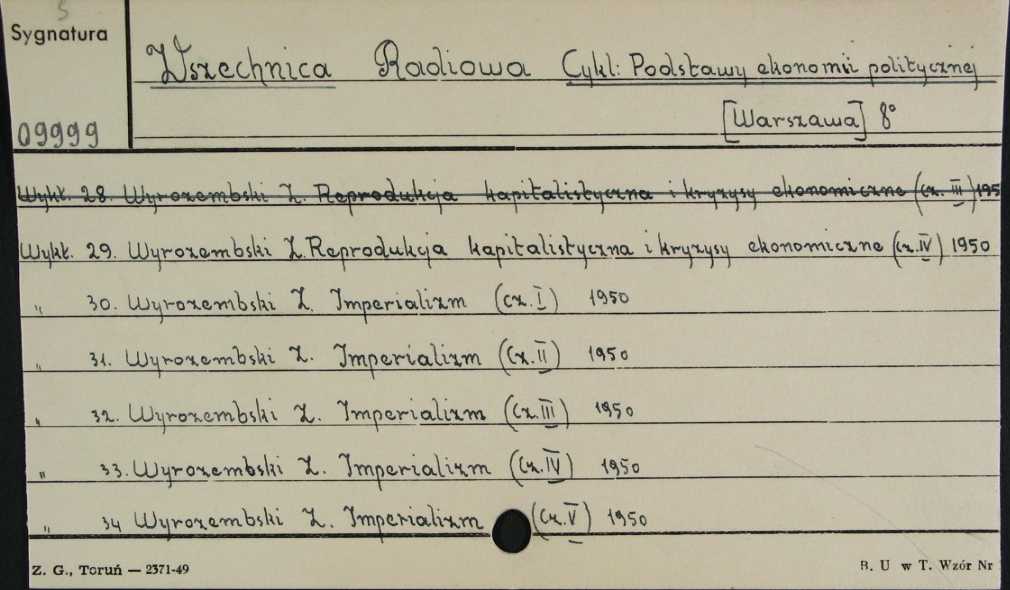 5
Sygnatura
Wszechnica Radiowa Cykl: Podstawy ekonomii politycznej
09999
[Warszawa] 8°
Wykł. 28. Wyrozembski Z. Reprodukcja kapitalistyczna i kryzysy ekonomiczne (cz. III) 195
Wykł. 29. Wyrozembski Z. Reprodukcja kapitalistyczna i kryzysy ekonomiczne (cz. IV) 1950
„ 30. Wyrozembski Z. Imperializm (cz. I) 1950
„ 31. Wyrozembski Z. Imperializm (cz. II) 1950
„ 32. Wyrozembski Z. Imperializm (cz. III) 1950
„ 33. Wyrozembski Z. Imperializm (cz. IV) 1950
„ 34 Wyrozembski Z. Imperializm (cz. V) 1950
Z. G., Toruń — 2371-49
B. U w T. Wzór Nr